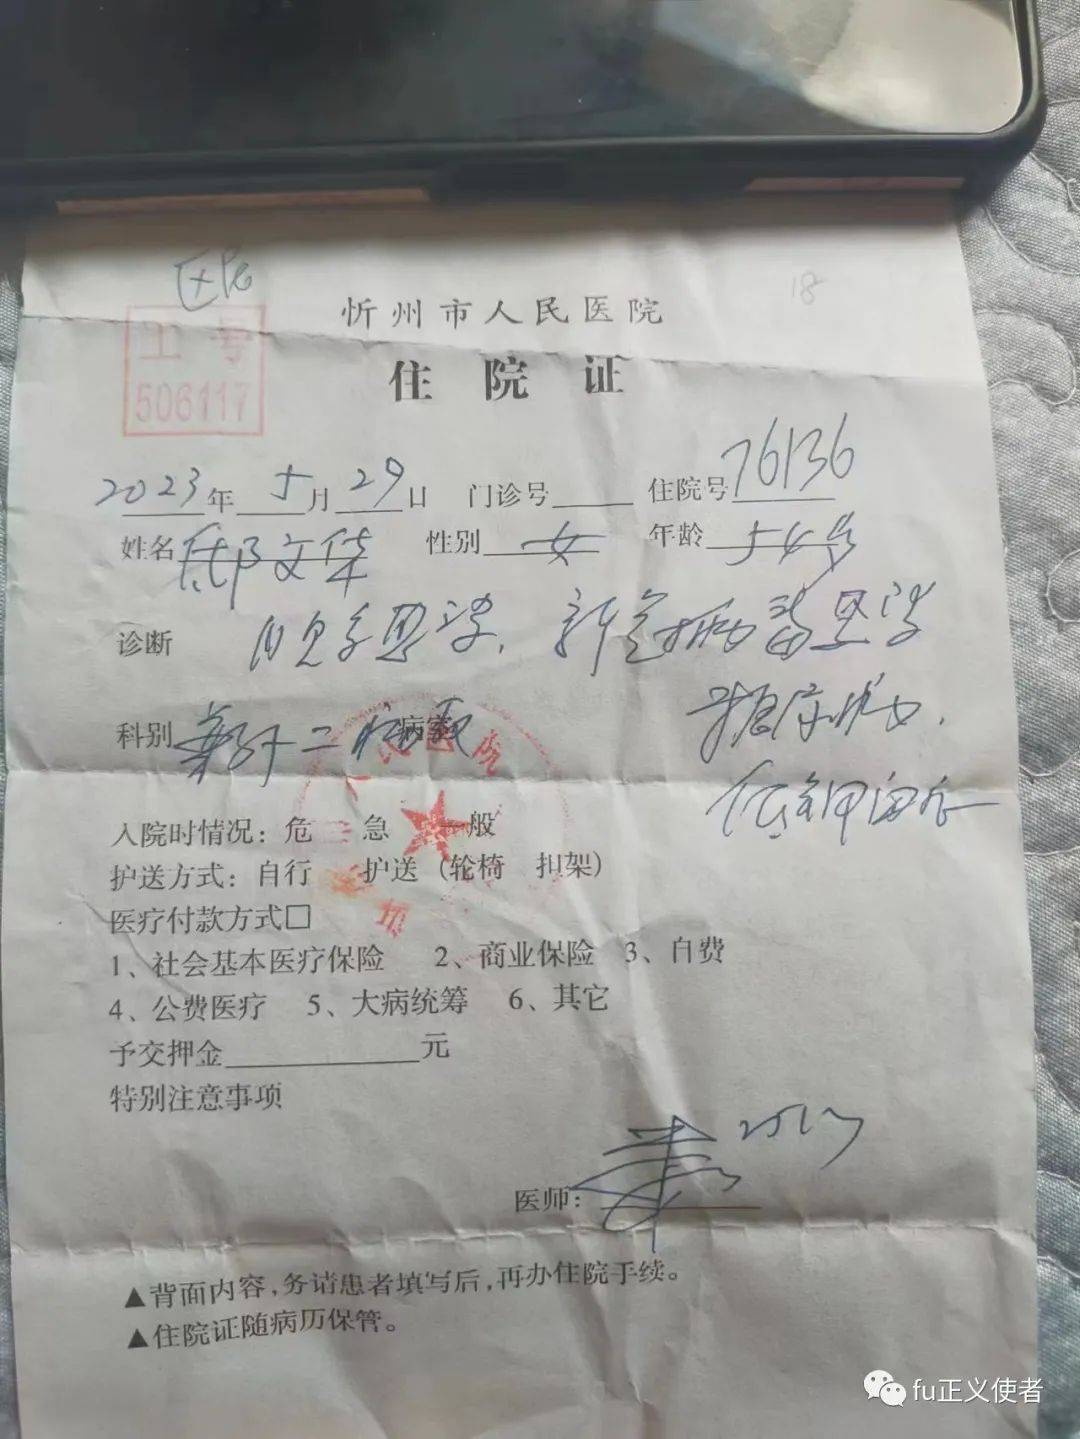 18
忻州市人民医院
工号
506117
住院证
2023年5月29日 门诊号 住院号76136
姓名 邸文华 性别 女 年龄 54岁
诊断 新冠病毒感染
糖尿病
科别 二病 病室
低钾血症
入院时情况：危 急 一般
护送方式：自行 护送（轮椅 担架）
医疗付款方式□
1、社会基本医疗保险 2、商业保险 3、自费
4、公费医疗 5、大病统筹 6、其它
予交押金 元
特别注意事项
医师：
▲背面内容，务请患者填写后，再办住院手续。
▲住院证随病历保管。
fu正义使者